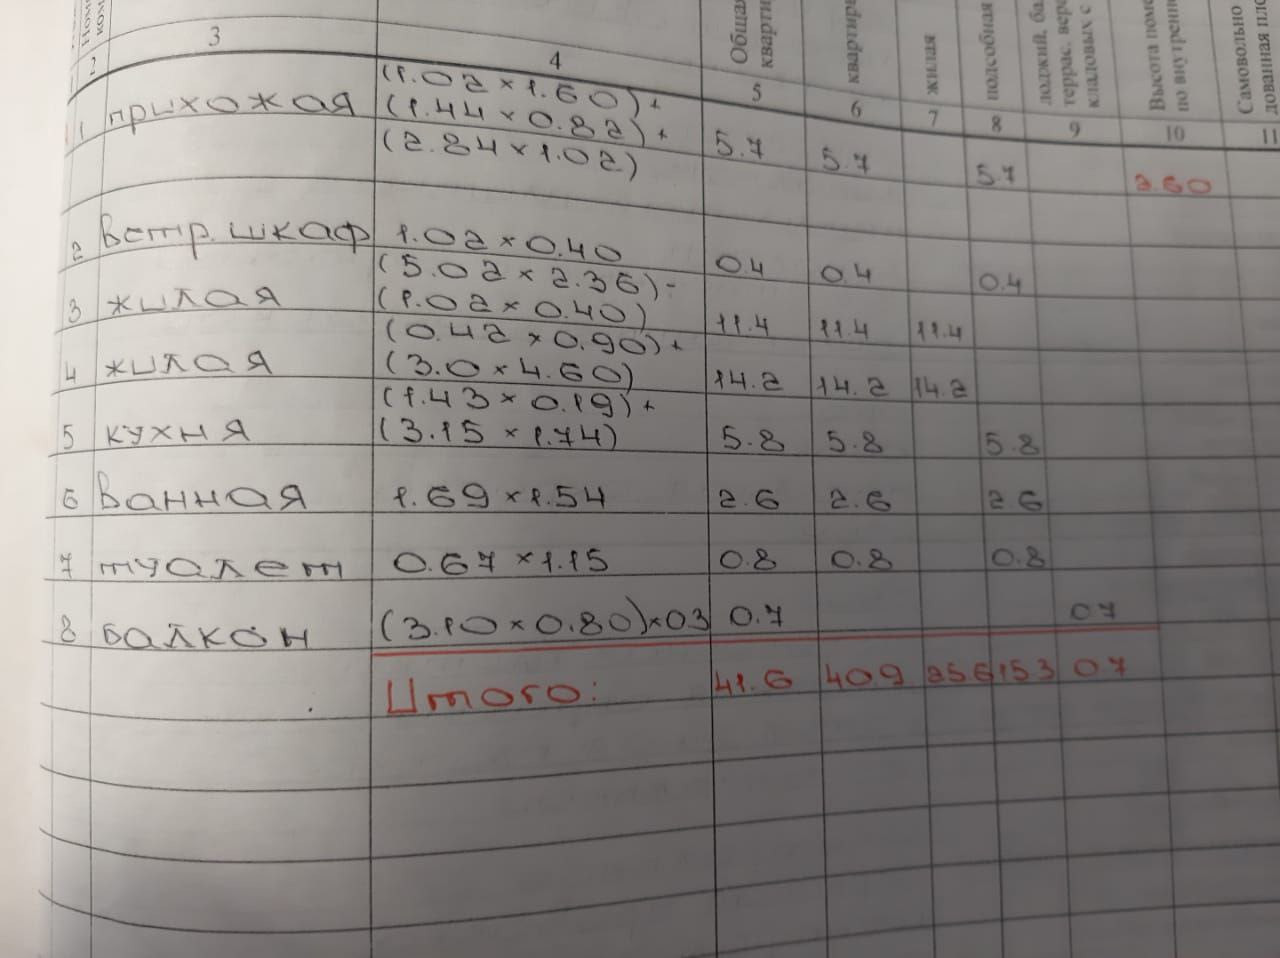 Общая
квартиры
жилая
подсобная
лоджий, ба
террас, вер
кладовых с
Высота
по внутренн
Самовольно
2 3 4 5 6 7 8 9 10 11
(1.02 × 1.60) +
1 прихожая (1.44 × 0.82) + 5.7 5.7 5.7 2.60
(2.84 × 1.02)
2 встр. шкаф 1.02 × 0.40 0.4 0.4 0.4
(5.02 × 2.36) -
3 жилая (1.02 × 0.40) 11.4 11.4 11.4
(0.42 × 0.90) +
4 жилая (3.0 × 4.60) 14.2 14.2 14.2
(1.43 × 0.19) +
5 кухня (3.15 × 1.74) 5.8 5.8 5.8
6 Ванная 1.69 × 1.54 2.6 2.6 2.6
7 туалет 0.67 × 1.15 0.8 0.8 0.8
8 балкон (3.10 × 0.80) × 03 0.7 07
Итого: 41.6 409 256 153 07